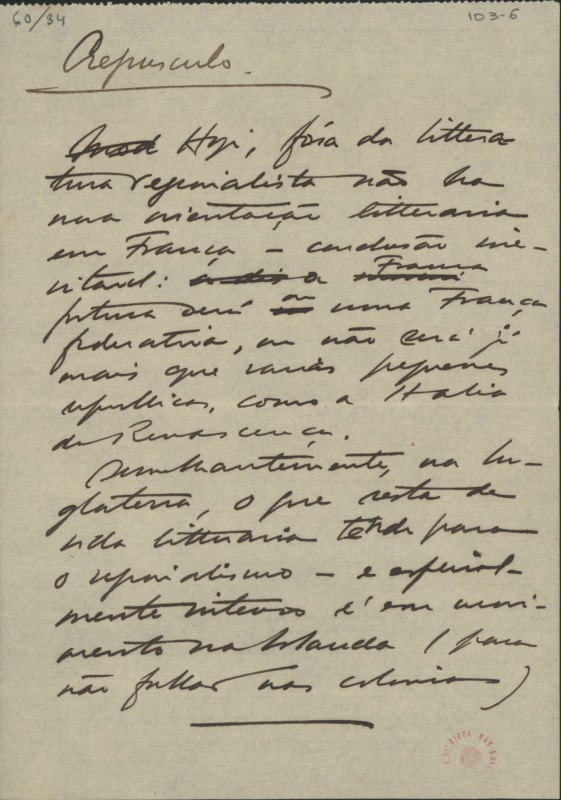 60/34
103-6
Crepusculo.
Hoje, fóra da littera-
tura regionalista não ha
nova orientação litteraria
em França — conclusão ine-
vitavel: a França
futura será ou uma França
federativa, ou não será já
mais que varias pequenas
republicas, como a Italia
da Renascença.
Semelhantemente, na In-
glaterra, o que resta de
vida litteraria tende para
o regionalismo — e especial-
mente intenso é esse movi-
mento na Irlanda (para
não fallar nas colonias)
BIBLIOTECA NACIONAL